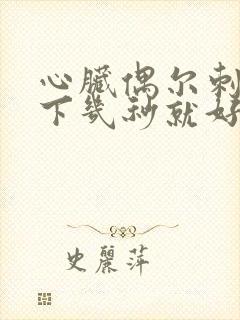 心臟偶尔刺
下幾秒就好
史麗萍